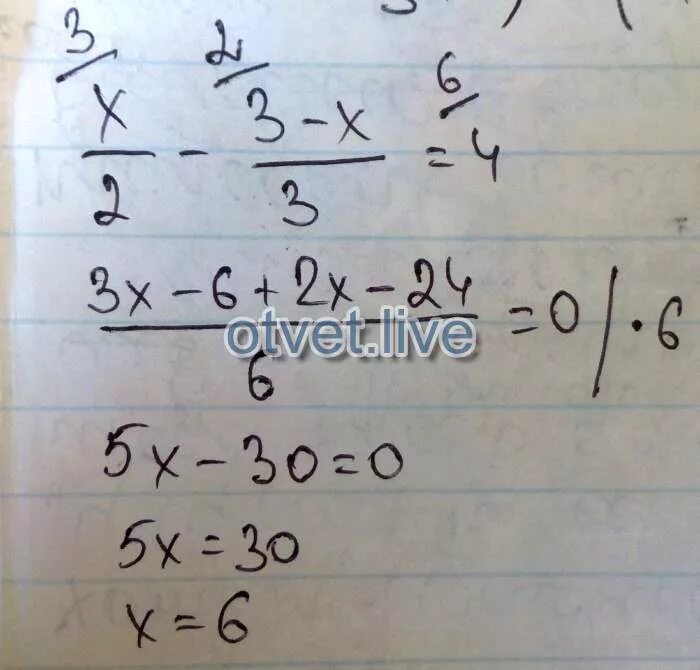 3/ 2/ 6/
x/2 - (3-x)/3 = 4
(3x-6+2x-24)/6 = 0 |·6
otvet.live
5x-30=0
5x=30
x=6